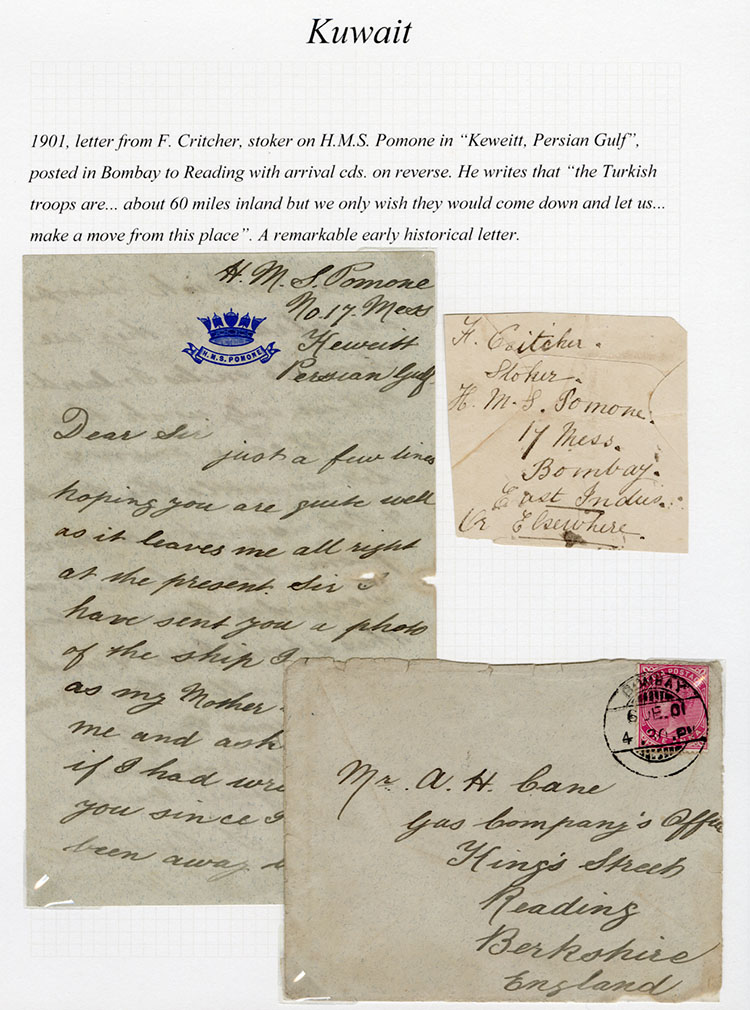 Kuwait
1901, letter from F. Critcher, stoker on H.M.S. Pomone in “Keweitt, Persian Gulf”,
posted in Bombay to Reading with arrival cds. on reverse. He writes that “the Turkish
troops are... about 60 miles inland but we only wish they would come down and let us...
make a move from this place”. A remarkable early historical letter.
H. M. S. Pomone
No. 17 Mess
Keweitt
Persian Gulf
H.M.S. POMONE
Dear Sir
just a few lines
hoping you are quite well
as it leaves me all right
at the present. Sir I
have sent you a photo
of the ship I
as my Mother
me and ask
if I had
you since I
been away
F. Critcher.
Stoker.
H. M. S. Pomone.
17 Mess.
Bombay.
East Indies.
Or Elsewhere.
BOMBAY
6 DE. 01
4
Mr. A. H. Cane
Gas Company's Office
King's Street
Reading
Berkshire
England